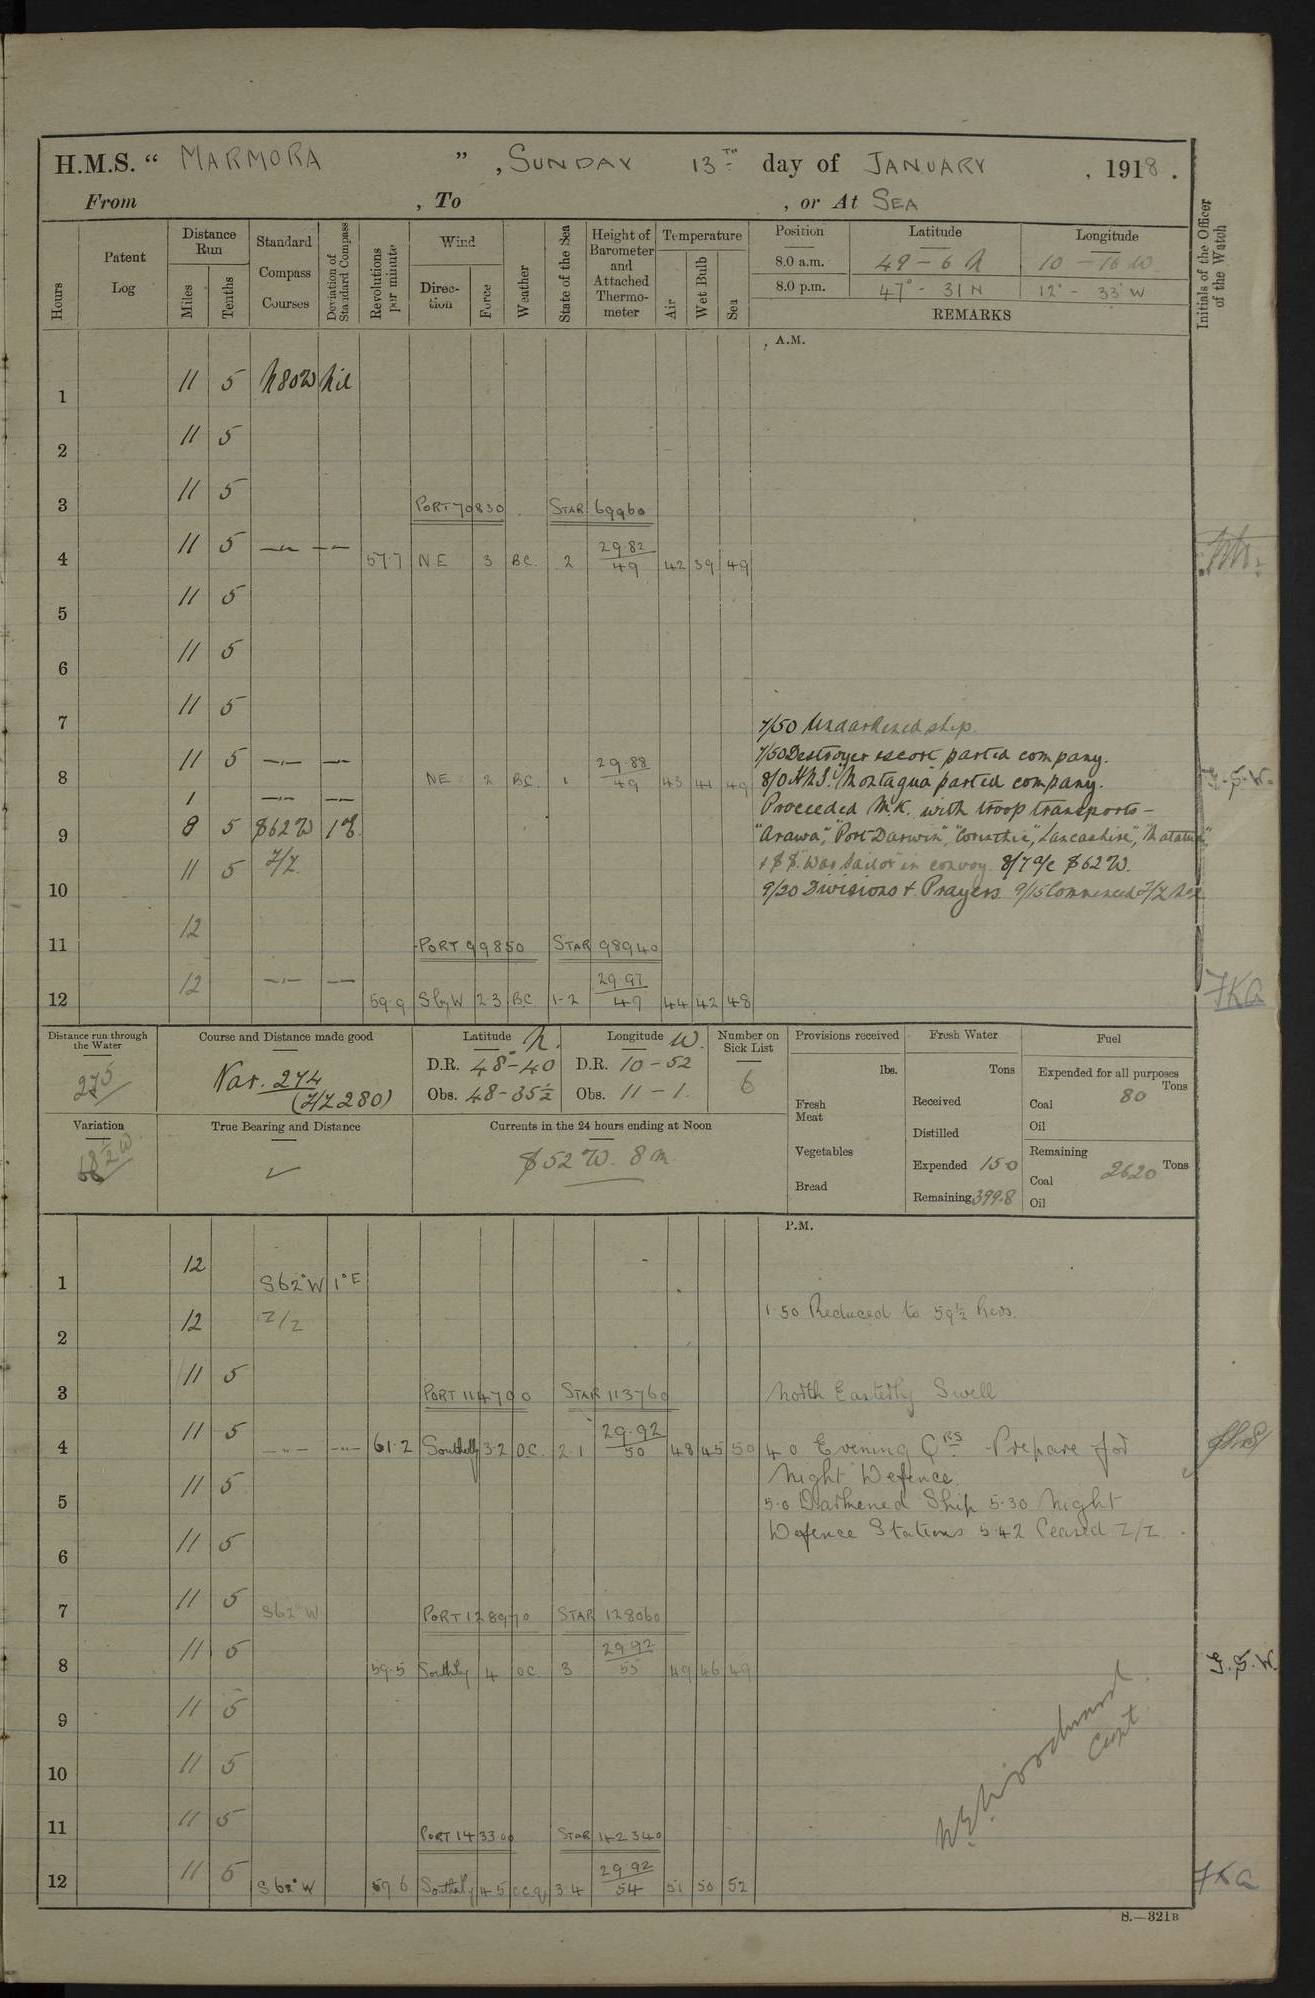 H.M.S. “ MARMORA ”, SUNDAY 13TH day of JANUARY, 1918.
From , To , or At SEA
Hours
Patent Log
Distance Run
Miles
Tenths
Standard Compass Courses
Deviation of Standard Compass
Revolutions per minute
Wind
Direction
Force
Weather
State of the Sea
Height of Barometer and Attached Thermometer
Temperature
Air
Wet Bulb
Sea
Position Latitude Longitude
8.0 a.m. 49 - 6 N 10 - 16 W
8.0 p.m. 47° - 31 N 12° - 33' W
REMARKS
Initials of the Officer of the Watch
A.M.
1 11 5 N80W Nil
2 11 5
3 11 5 PORT 70830 STAR 69960
4 11 5 —"— —"— 57.7 NE 3 BC 2 29.82/49 42 39 49
5 11 5
6 11 5
7 11 5
7/50 Undarkened ship.
7/50 Destroyer escort parted company.
8 11 5 —"— —"— NE 2 BC 1 29.88/49 43 41 49
8/0 H.M.S. "Montagua parted company.
1 —"— —"—
Proceeded M.K. with troop transports -
9 8 5 S62W 1°E
"Arawa", "Port Darwin", "Corinthic", Lancashire", "Matatua",
11 5 Z/Z
+ S.S. "War Sailor" in convoy. 8/7 a/c S62W.
10
9/20 Divisions + Prayers 9/15 Commenced Z/Z
11 12 PORT 99850 STAR 98940
12 12 —"— —"— 59.9 SbyW 2.3 BC 1-2 29.97/49 44 42 48 FKA
Distance run through the Water
275
Course and Distance made good
Var. 274
(Z/Z 280)
Latitude N.
D.R. 48°-40
Obs. 48-35½
Longitude W.
D.R. 10-52
Obs. 11-1.
Number on Sick List
6
Provisions received
lbs.
Fresh Meat
Vegetables
Bread
Fresh Water
Tons
Received
Distilled
Expended 150
Remaining 399.8
Fuel
Expended for all purposes
Tons
Coal 80
Oil
Remaining
Coal 2620 Tons
Oil
Variation
18½W
True Bearing and Distance
Currents in the 24 hours ending at Noon
S52W. 8m
P.M.
1 12 S62°W 1°E
2 12 Z/Z
1.50 Reduced to 59½ Revs.
3 11 5 PORT 114700 STAR 113760
North Easterly Swell
4 11 5 —"— —"— 61.2 Southely 3.2 O.C. 2.1 29.92/50 48 45 50
4 0 Evening Qrs Prepare for
Night Defence.
5 11 5
5.0 Darkened Ship 5.30 Night
Defence Stations 5.42 Ceased Z/Z.
6 11 5
7 11 5 S62°W PORT 128970 STAR 128060
8 11 5 59.5 Southly 4 OC 3 29.92/55 49 46 49 G.S.W.
9 11 5
10 11 5
11 11 5 PORT 143300 STAR 142340
12 11 5 S62°W 59.6 Southely 4.5 3.4 29.92/54 51 50 52 FKA
Woodward
Capt
S.—321B